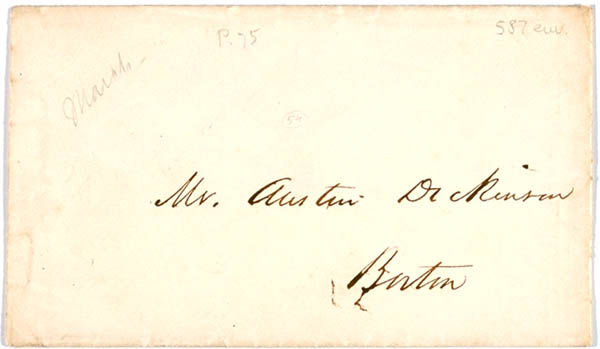 587 env.
P. 75
March
54
Mr. Austin Dickinson
Boston